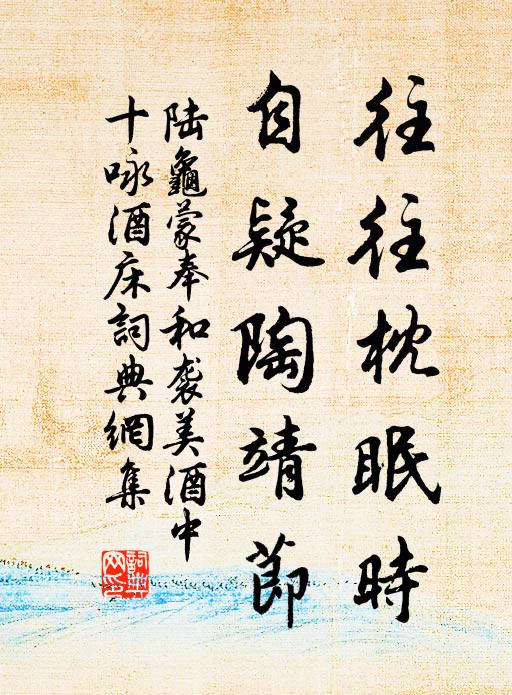 往往枕眠時
自疑陶靖節
陆龜蒙奉和袭美酒中
十咏酒床詞典網集